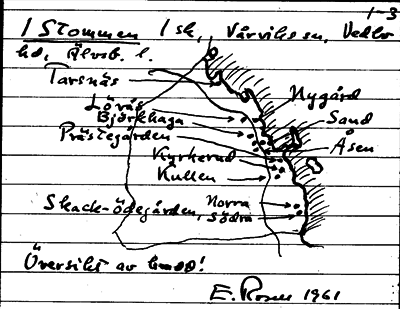 1-3
1 Stommen 1 sk, Vårviks sn, Vedbo
hd, Älvsb. l.
Tarsnäs
Nygård
Lövås
Sand
Björkhaga
Prästegården
Åsen
Kyrkerud
Kullen
Skack-ödegården, Norra
Södra
Översikt av
E. Rosen 1961